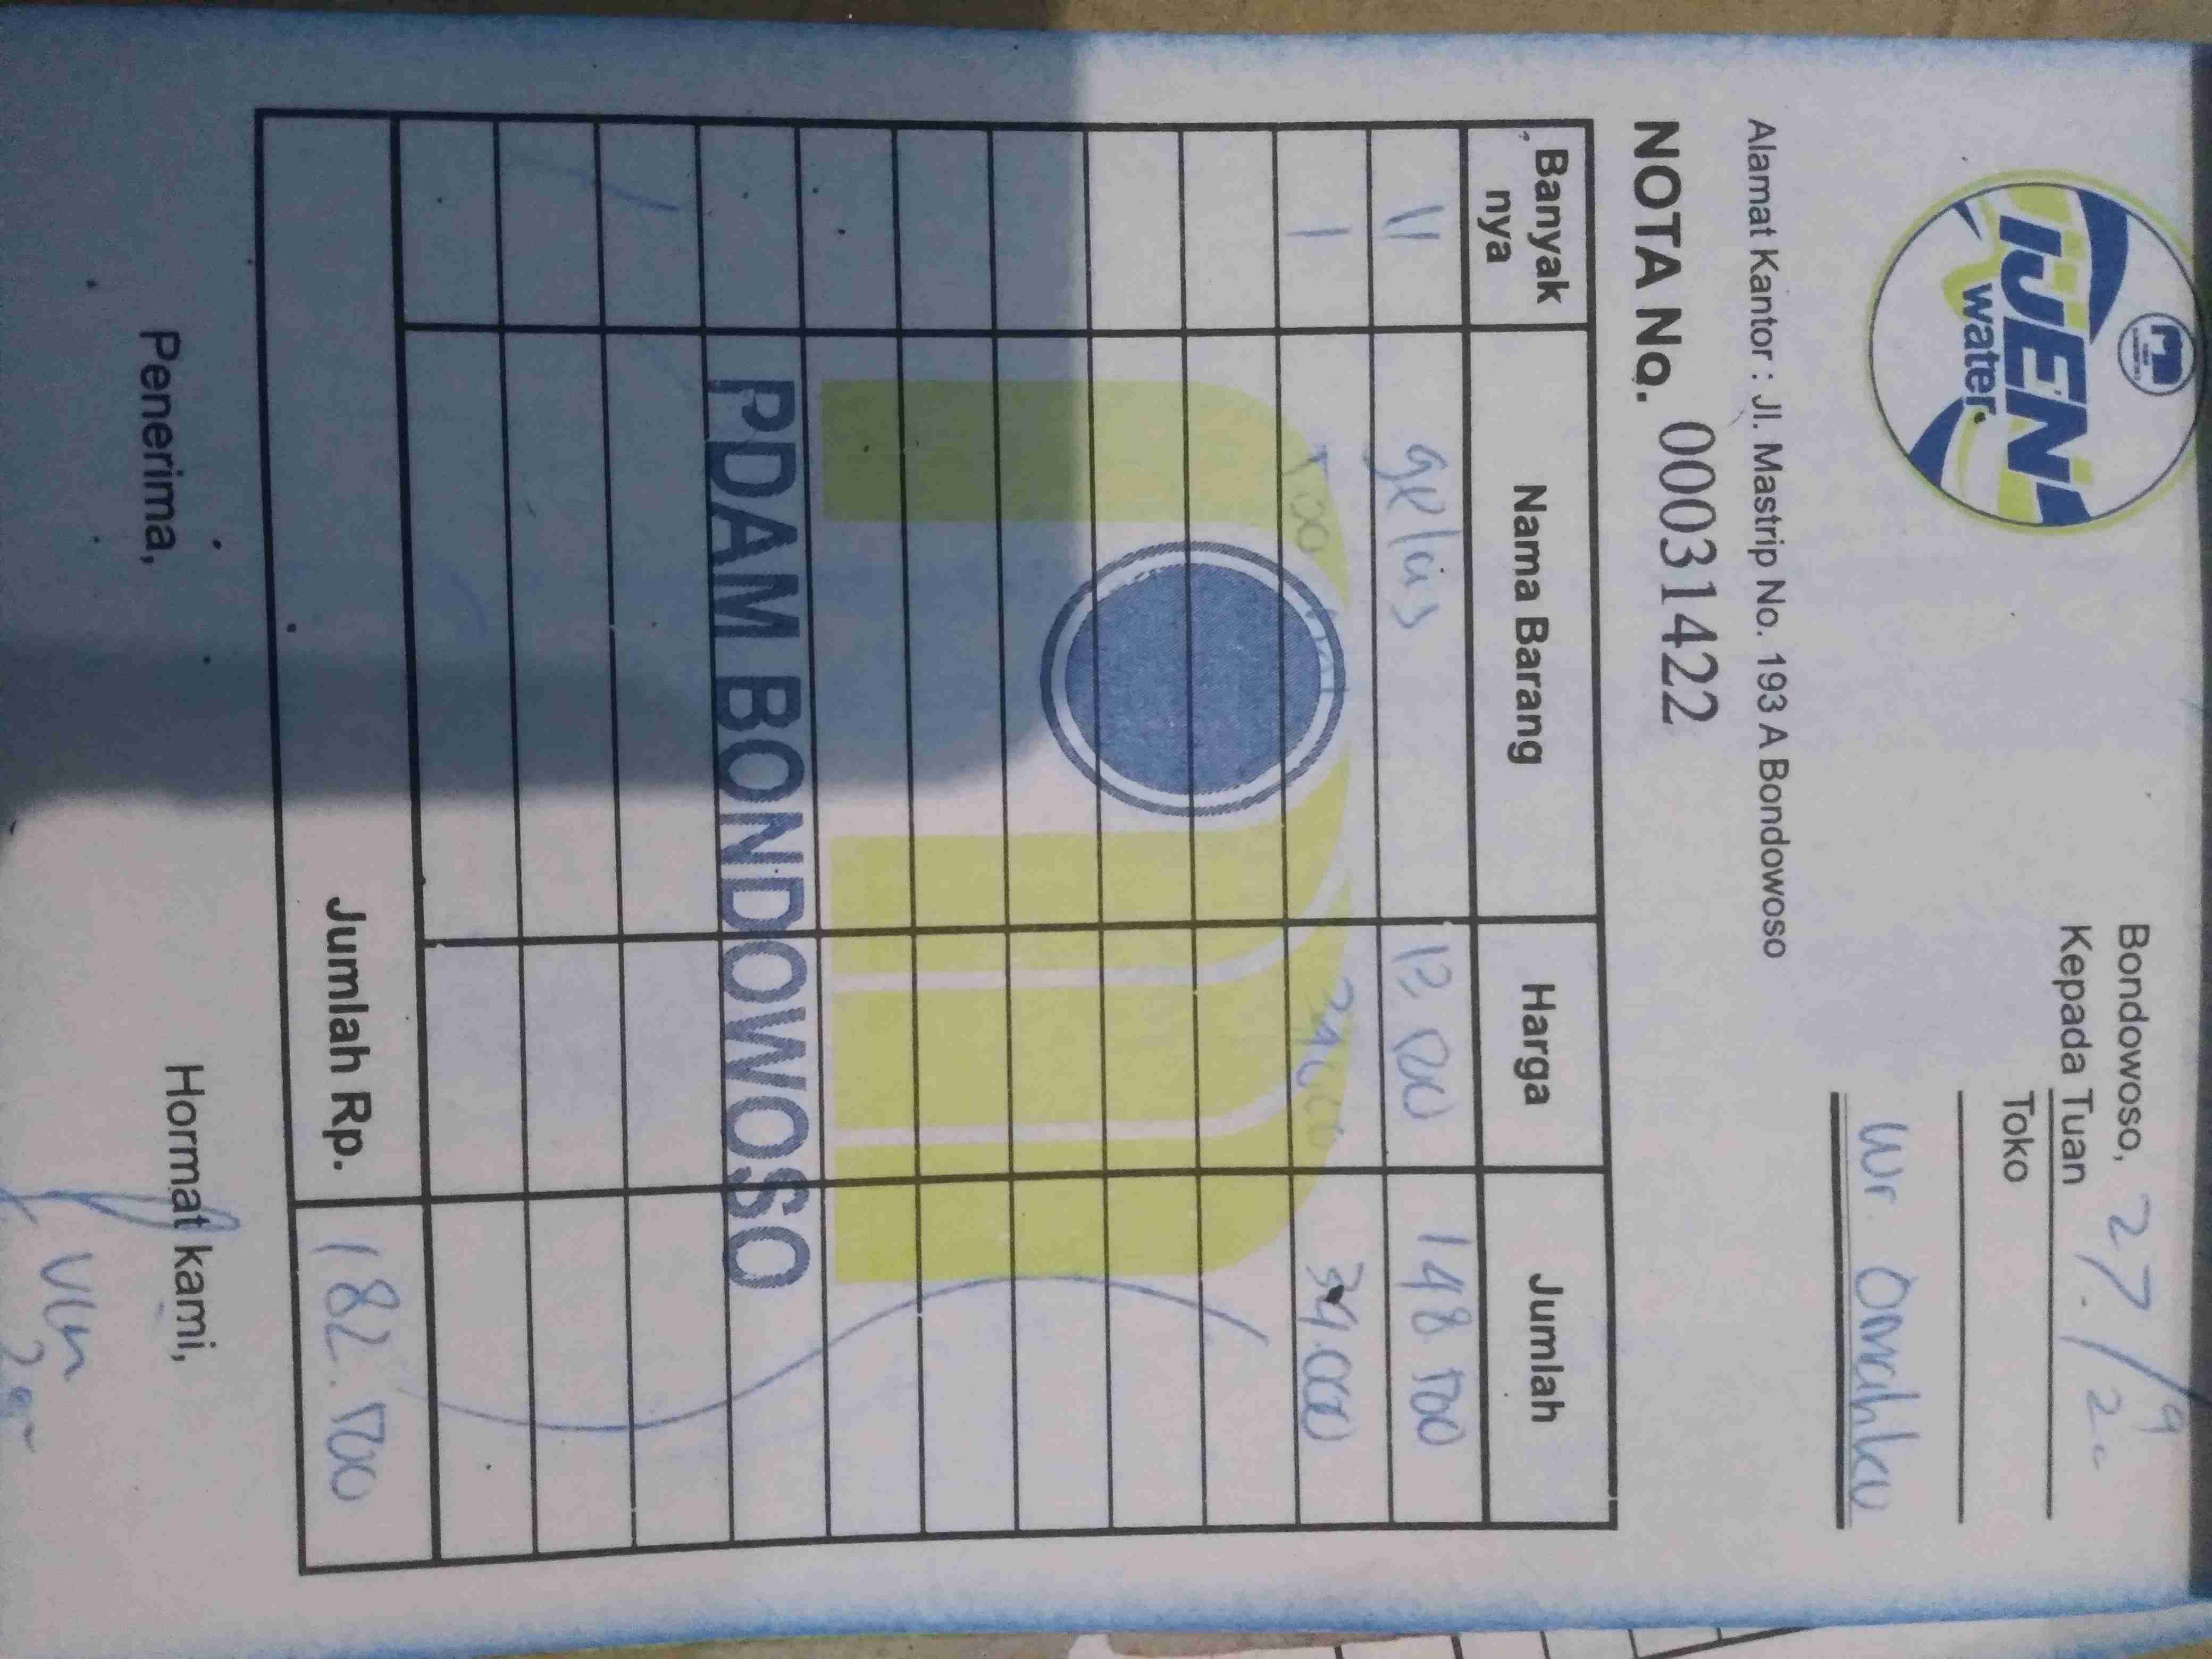 IJEN
water
Bondowoso, 27/9 20
Kepada Tuan
Toko
Wr. Omahku
Alamat Kantor : Jl. Mastrip No. 193 A Bondowoso
NOTA No. 00031422
Banyak nya Nama Barang Harga Jumlah
11 gelas 13.500 148 500
1 34.000 34.000
PDAM BONDOWOSO
Jumlah Rp. 182.500
Penerima, Hormat kami,